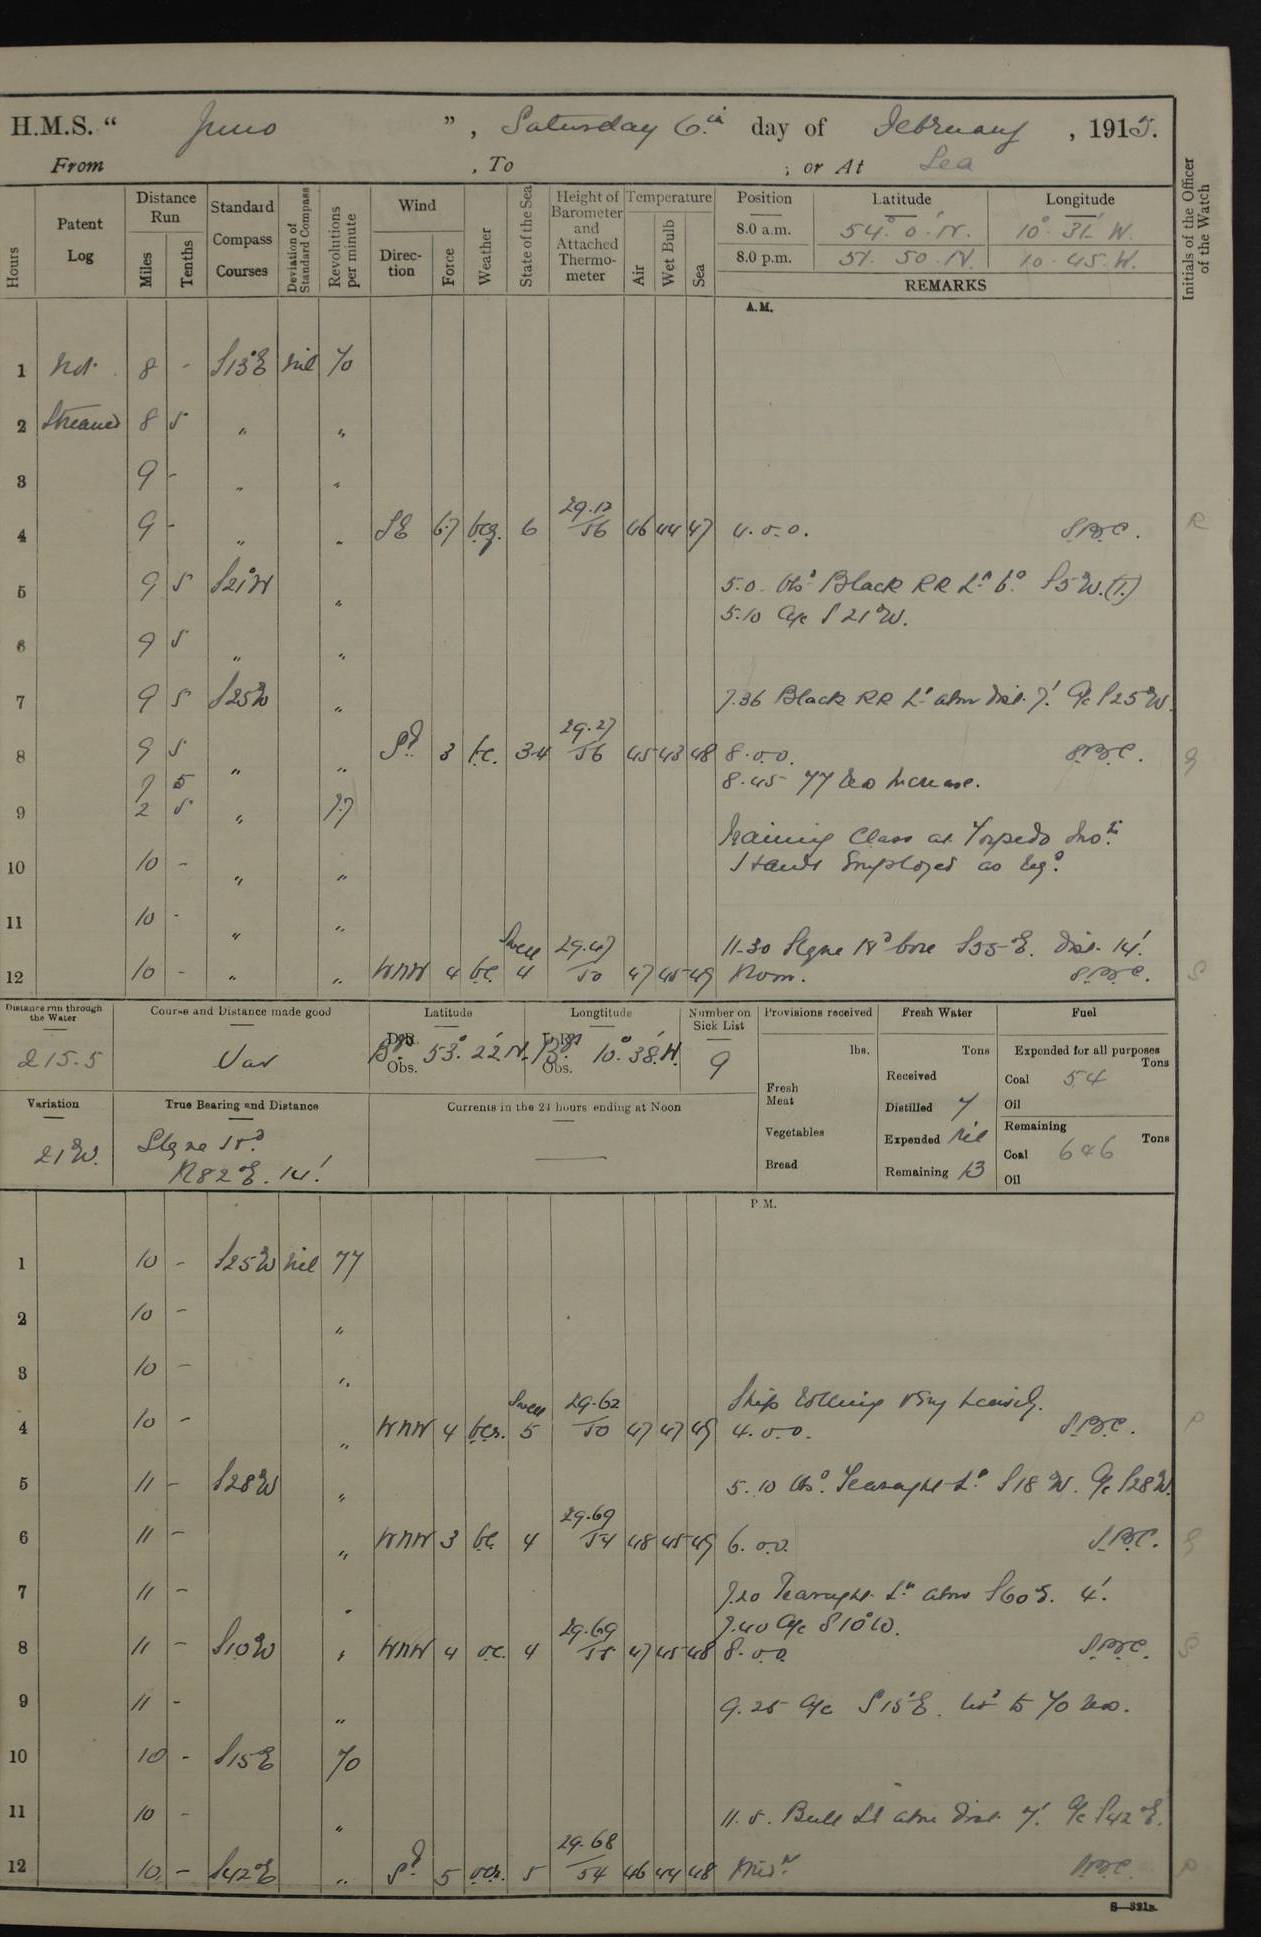 H.M.S. “ Juno ” , Saturday 6th day of February , 1915.
From , To ; or At Sea
Hours
Patent Log
Distance Run
Miles
Tenths
Standard Compass Courses
Deviation of Standard Compass
Revolutions per minute
Wind
Direction
Force
Weather
State of the Sea
Height of Barometer and Attached Thermometer
Temperature
Air
Wet Bulb
Sea
Position Latitude Longitude
8.0 a.m. 54° 0' N. 10° 31' W.
8.0 p.m. 51. 50. N. 10. 45. W.
REMARKS
Initials of the Officer of the Watch
A.M.
1 Not 8 - S13°E Nil 70
2 Streamed 8 5 " "
3 9 - " "
4 9 - " " SE 6.7 bcq. 6 29.12/56 46 44 47 4.0.0. R
5 9 5 S21°W " 5.0. Obsd Black RR Lt bg S5°W.(T.)
5.10 A/c S 21°W.
6 9 5 " "
7 9 5 S25W " 7.36 Black RR Lt abm dist. 7'. A/c S25°W.
8 9 5 " " Sd 3 bc. 3.4 29.27/56 45 43 48 8.0.0.
7 5 8.45 77 revs increase.
9 2 5 " 77
Training Class at Torpedo Instn
10 10 - " " Hands Employed as reqd
11 10 - " "
11.30 Slyne Hd bore S55°E. Dist. 14'.
12 10 - " " WNW 4 bc. Swell 4 29.47/50 47 45 49 Noon. S
Distance run through the Water
215.5
Course and Distance made good
Var
Latitude
D.R. Obs. 53° 22' N.
Longtitude
D.R. Obs. 10° 38' W.
Number on Sick List
9
Provisions received
lbs.
Fresh Meat
Vegetables
Bread
Fresh Water
Tons
Received
Distilled 7
Expended Nil
Remaining 13
Fuel
Expended for all purposes
Tons
Coal 54
Oil
Remaining
Tons
Coal 646
Oil
Variation
21°W.
True Bearing and Distance
Slyne Hd
N82°E. 14'.
Currents in the 24 hours ending at Noon
P.M.
1 10 - S25W Nil 77
2 10 - "
3 10 - "
Ship rolling very heavily.
4 10 - " WNW 4 Swell 5 29.62/50 47 47 49 4.0.0. P
5 11 - S28W " 5.10 Obsd Tearaght Lt S18°W. A/c S28W.
6 11 - " WNW 3 bc 4 29.69/54 48 45 49 6.0.0.
7 11 - " 7.20 Tearaght Lt abm S60E. 4'.
7.40 A/c S10°W.
8 11 - S10W " WNW 4 oc. 4 29.69/55 47 45 48 8.0.0 S
9 11 - " 9.25 A/c S15°E. to 70 revs.
10 10 - S15E 70
11 10 - " 11.5. Bull Lt abm dist. 7'. A/c S42°E.
12 10 - S42E " Sd 5 5 29.68/54 46 44 48 Midt P
S—321B.